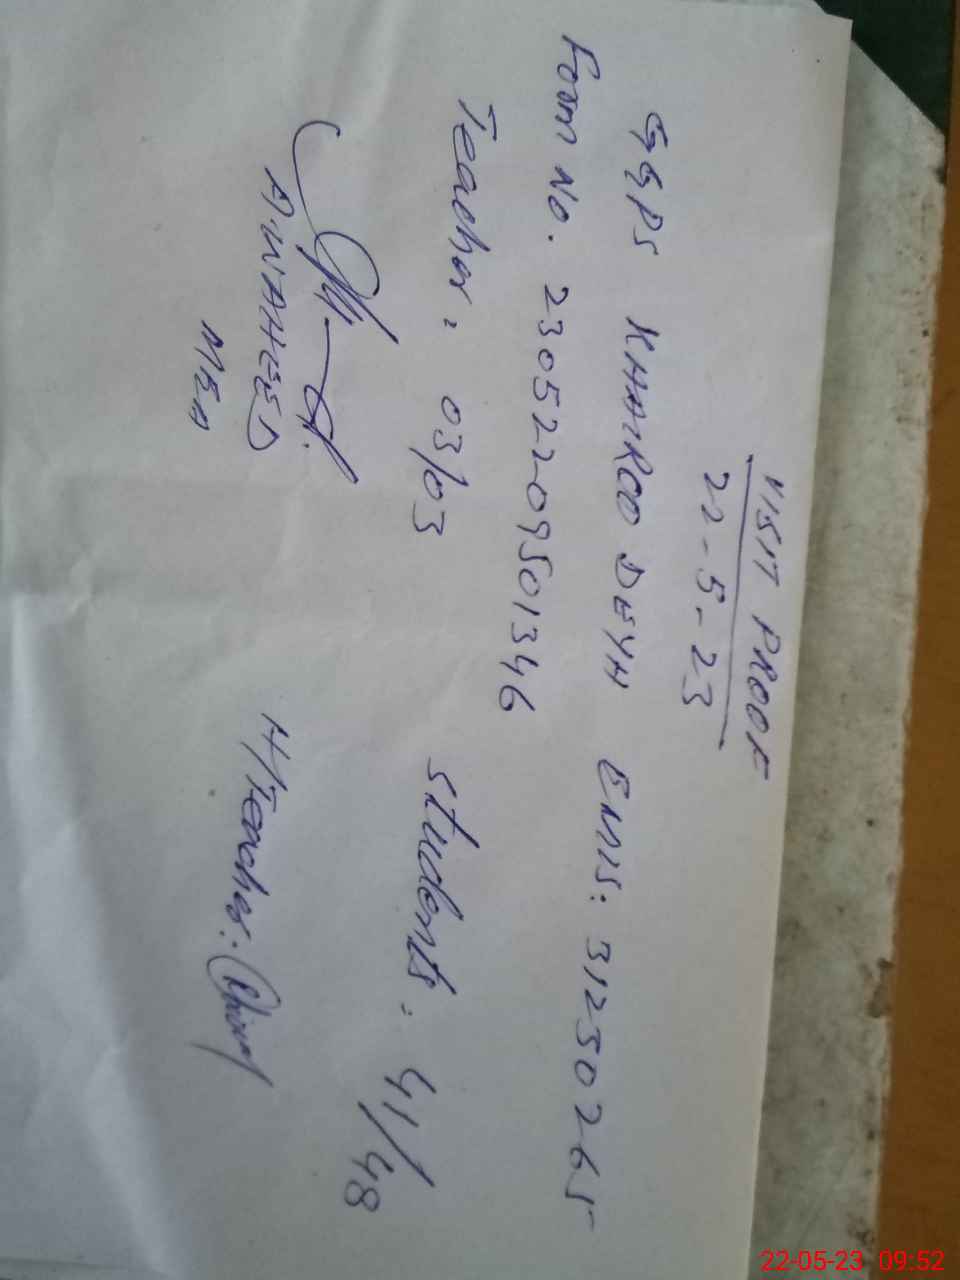 VISIT PROOF
22-5-23
GGPS KHAIROO DEYH EMIS: 31250265
Form No. 23052209501346
Teacher: 03/03 Students: 41/48
A.WAHEED H/Teacher:
MEA
22-05-23 09:52